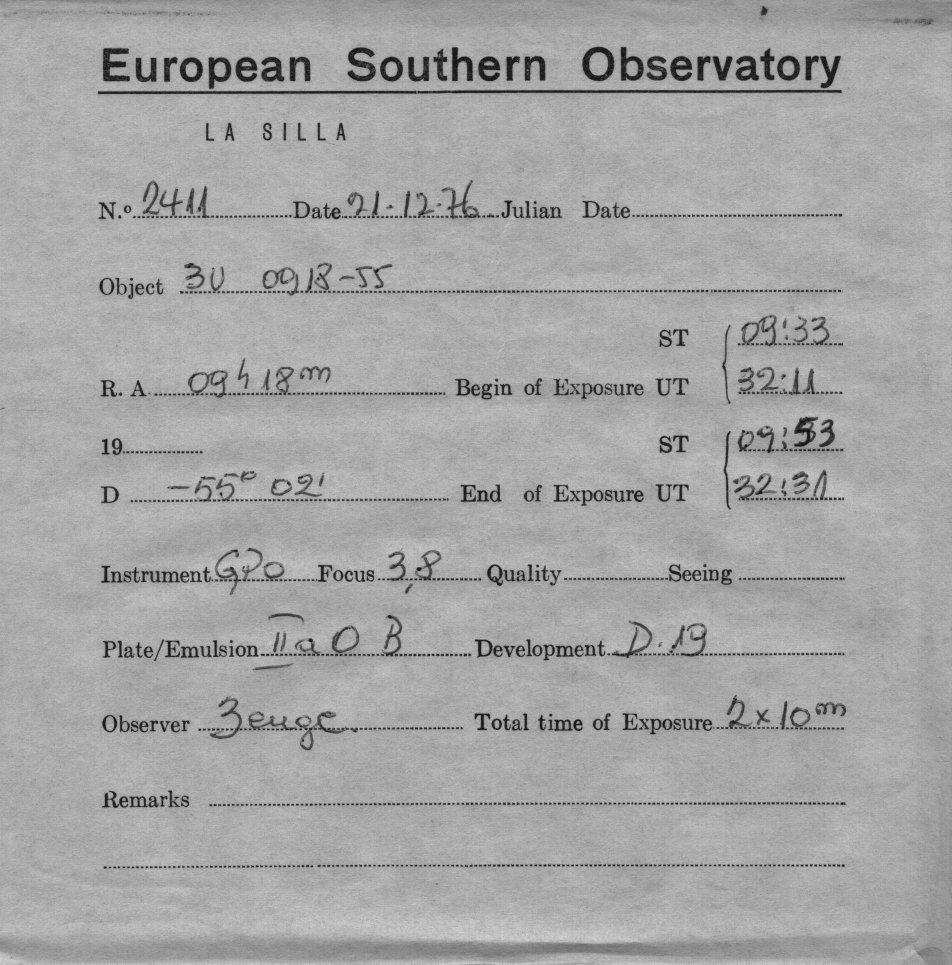 European Southern Observatory
LA SILLA
N.º 2411 Date 21-12-76 Julian Date
Object 3U 0918-55
ST 09:33
R. A 09h 18m Begin of Exposure UT 32:11
19 ST 09:53
D -55° 02' End of Exposure UT 32:31
Instrument GPO Focus 3,8 Quality Seeing
Plate/Emulsion IIa O B Development D.19
Observer Total time of Exposure 2x10m
Remarks